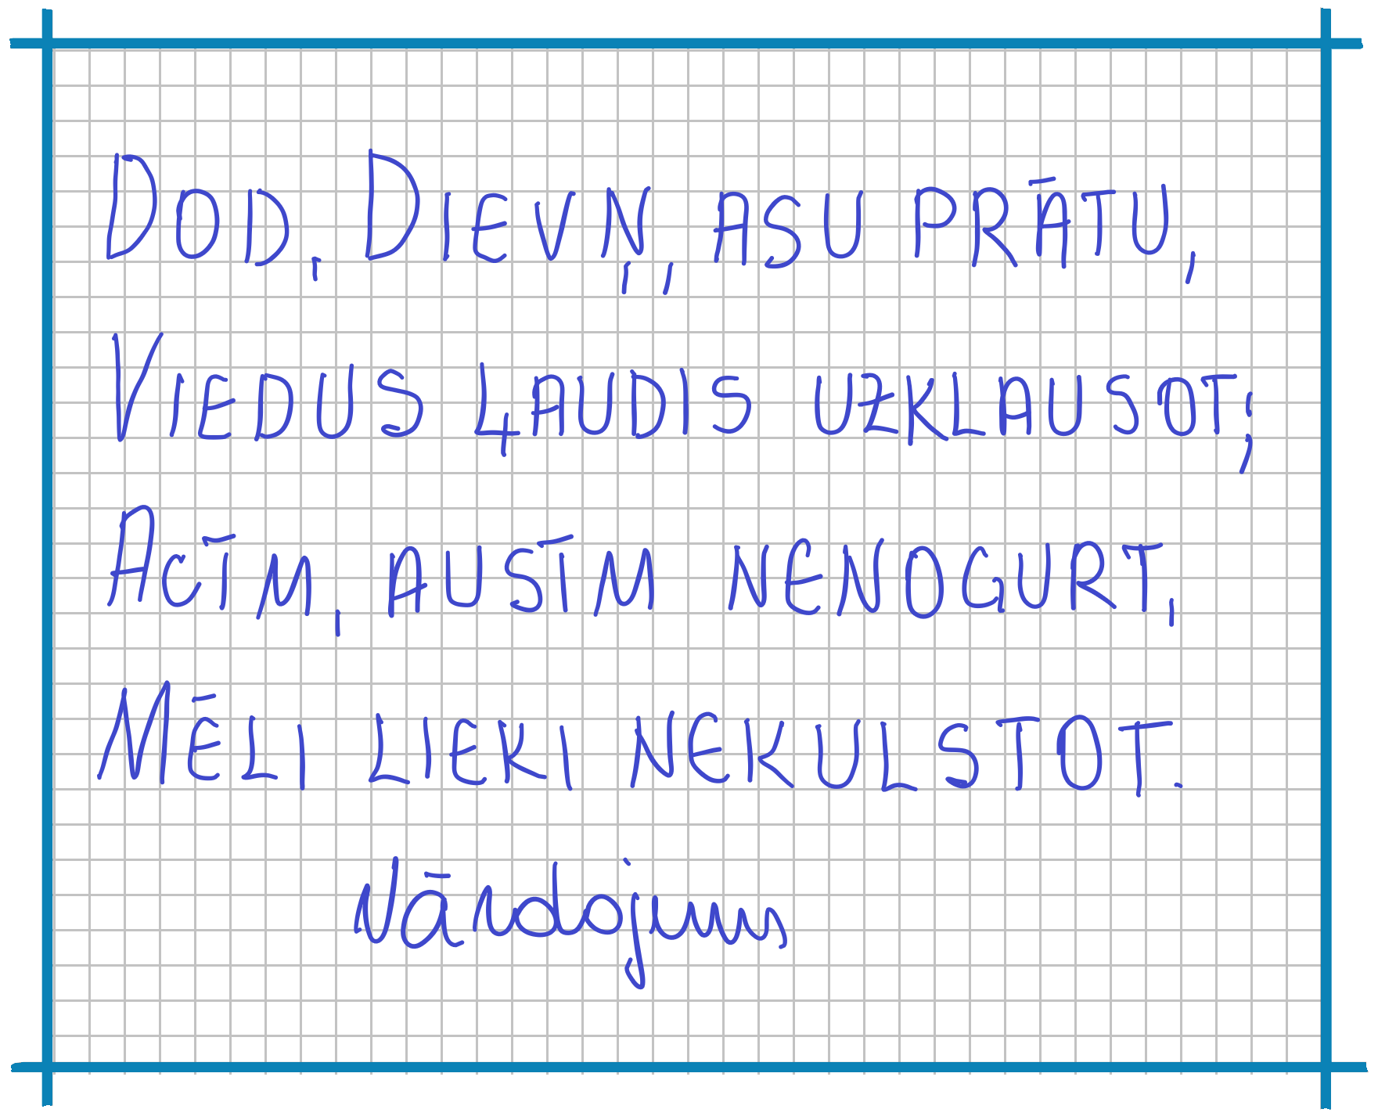 DOD, DIEVIŅ, ASU PRĀTU,
VIEDUS ĻAUDIS UZKLAUSOT;
ACĪM, AUSĪM NENOGURT,
MĒLI LIEKI NEKULSTOT.
Vārdojums